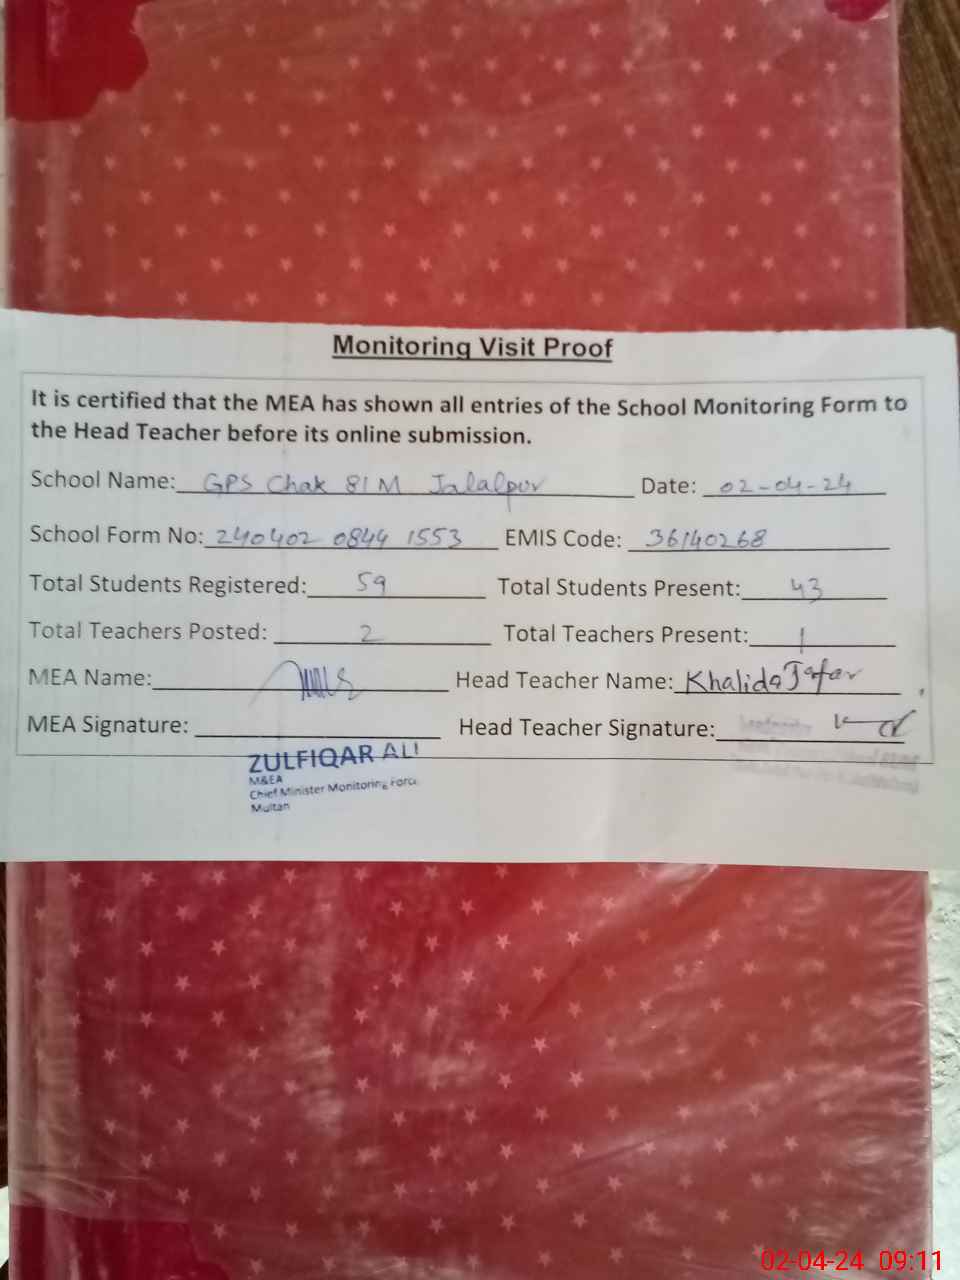 Monitoring Visit Proof
It is certified that the MEA has shown all entries of the School Monitoring Form to
the Head Teacher before its online submission.
School Name: GPS Chak 81 M Jalalpur Date: 02-04-24
School Form No: 240402 0844 1553 EMIS Code: 36140268
Total Students Registered: 59 Total Students Present: 43
Total Teachers Posted: 2 Total Teachers Present: 1
MEA Name: Head Teacher Name: Khalida Jafar
MEA Signature: Head Teacher Signature:
ZULFIQAR ALI
M&EA
Chief Minister Monitoring Force
Multan
02-04-24 09:11